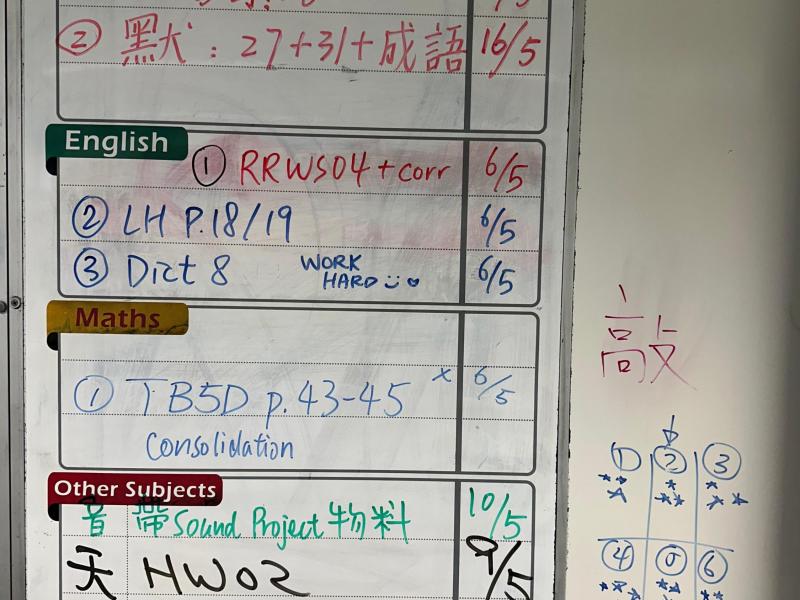 ② 默:27+31+成語 16/5
English
① RRWS04+corr 6/5
② LH P.18/19 6/5
③ Dict 8 WORK HARD 6/5
Maths
① TB5D p.43-45 6/5
Consolidation
Other Subjects
音 帶Sound Project物料 10/5
天 HW02 9/5
敲
① ② ③
④ ⑤ ⑥